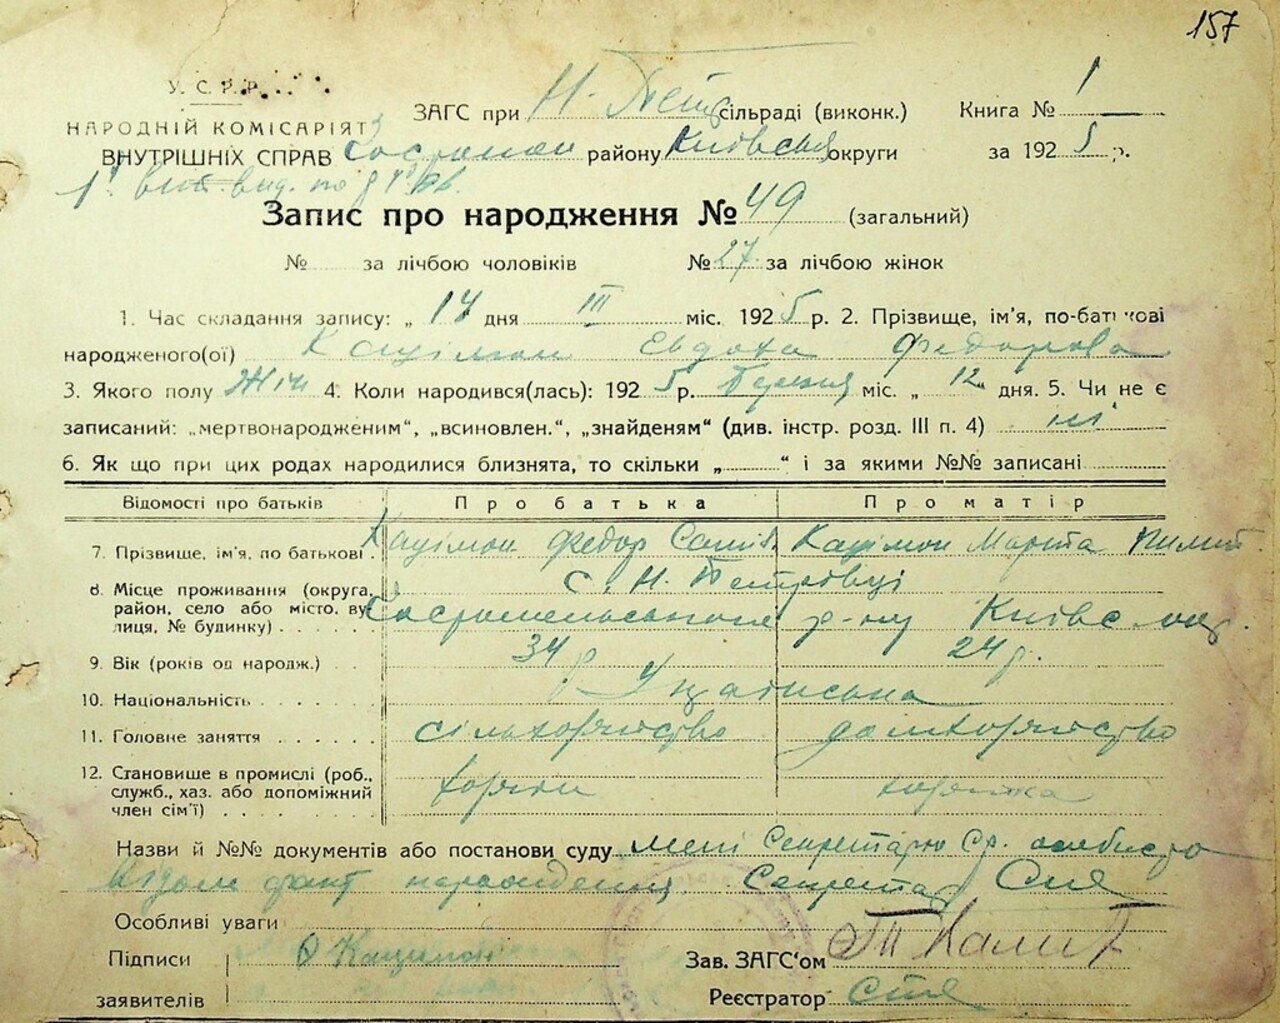 157
У. С. Р. Р.
НАРОДНІЙ КОМІСАРІЯТ
ВНУТРІШНІХ СПРАВ
ЗАГС при Н. Петр сільраді (виконк.) Книга № 1
району Київська округи за 1925 р.
Запис про народження № 49 (загальний)
№ за лічбою чоловіків № 27 за лічбою жінок
1. Час складання запису: „ 14 дня III міс. 1925 р. 2. Прізвище, ім'я, по-батькові
народженого(ої) Кацімон Евдоха Федорова
3. Якого полу Жін 4. Коли народився(лась): 1925 р. Березня міс. „ 12 “ дня. 5. Чи не є
записаний: „мертвонародженим“, „всиновлен.“, „знайденям“ (див. інстр. розд. III п. 4) ні
6. Як що при цих родах народилися близнята, то скільки „ “ і за якими №№ записані
Відомості про батьків Про батька Про матір
7. Прізвище, ім'я, по батькові Кацімон Федор Кацімон Марта Пилип.
8. Місце проживання (округа, район, село або місто, вулиця, № будинку) с. Н. Петрівці
р-ну Київс. окр.
9. Вік (років од народж.) 34 р 24 р.
10. Національність Українська
11. Головне заняття сільхозяйство домхозяйство
12. Становище в промислі (роб., служб., хаз. або допоміжний член сім'ї) хозяїн хозяйка
Назви й №№ документів або постанови суду мені Секретарю Ср. особисто
відом факт народження Секретар
Особливі уваги
Підписи Кацимон Зав. ЗАГС'ом
заявителів Реєстратор